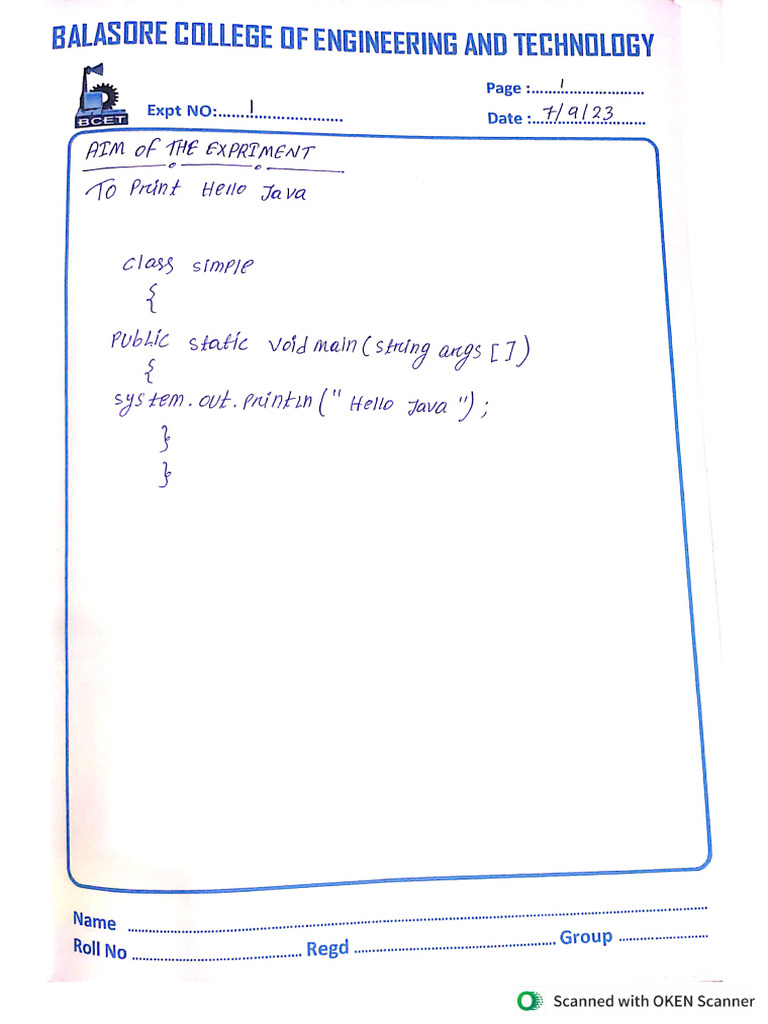 BALASORE COLLEGE OF ENGINEERING AND TECHNOLOGY
BCET
Expt NO:......1......................
Page :......1......................
Date :...7/9/23......................
AIM OF THE EXPRIMENT
To Print Hello Java
class simple
{
public static void main(string args [])
{
system.out.println(" Hello Java ");
}
}
Name ......................
Roll No ...................... Regd ...................... Group ......................
Scanned with OKEN Scanner